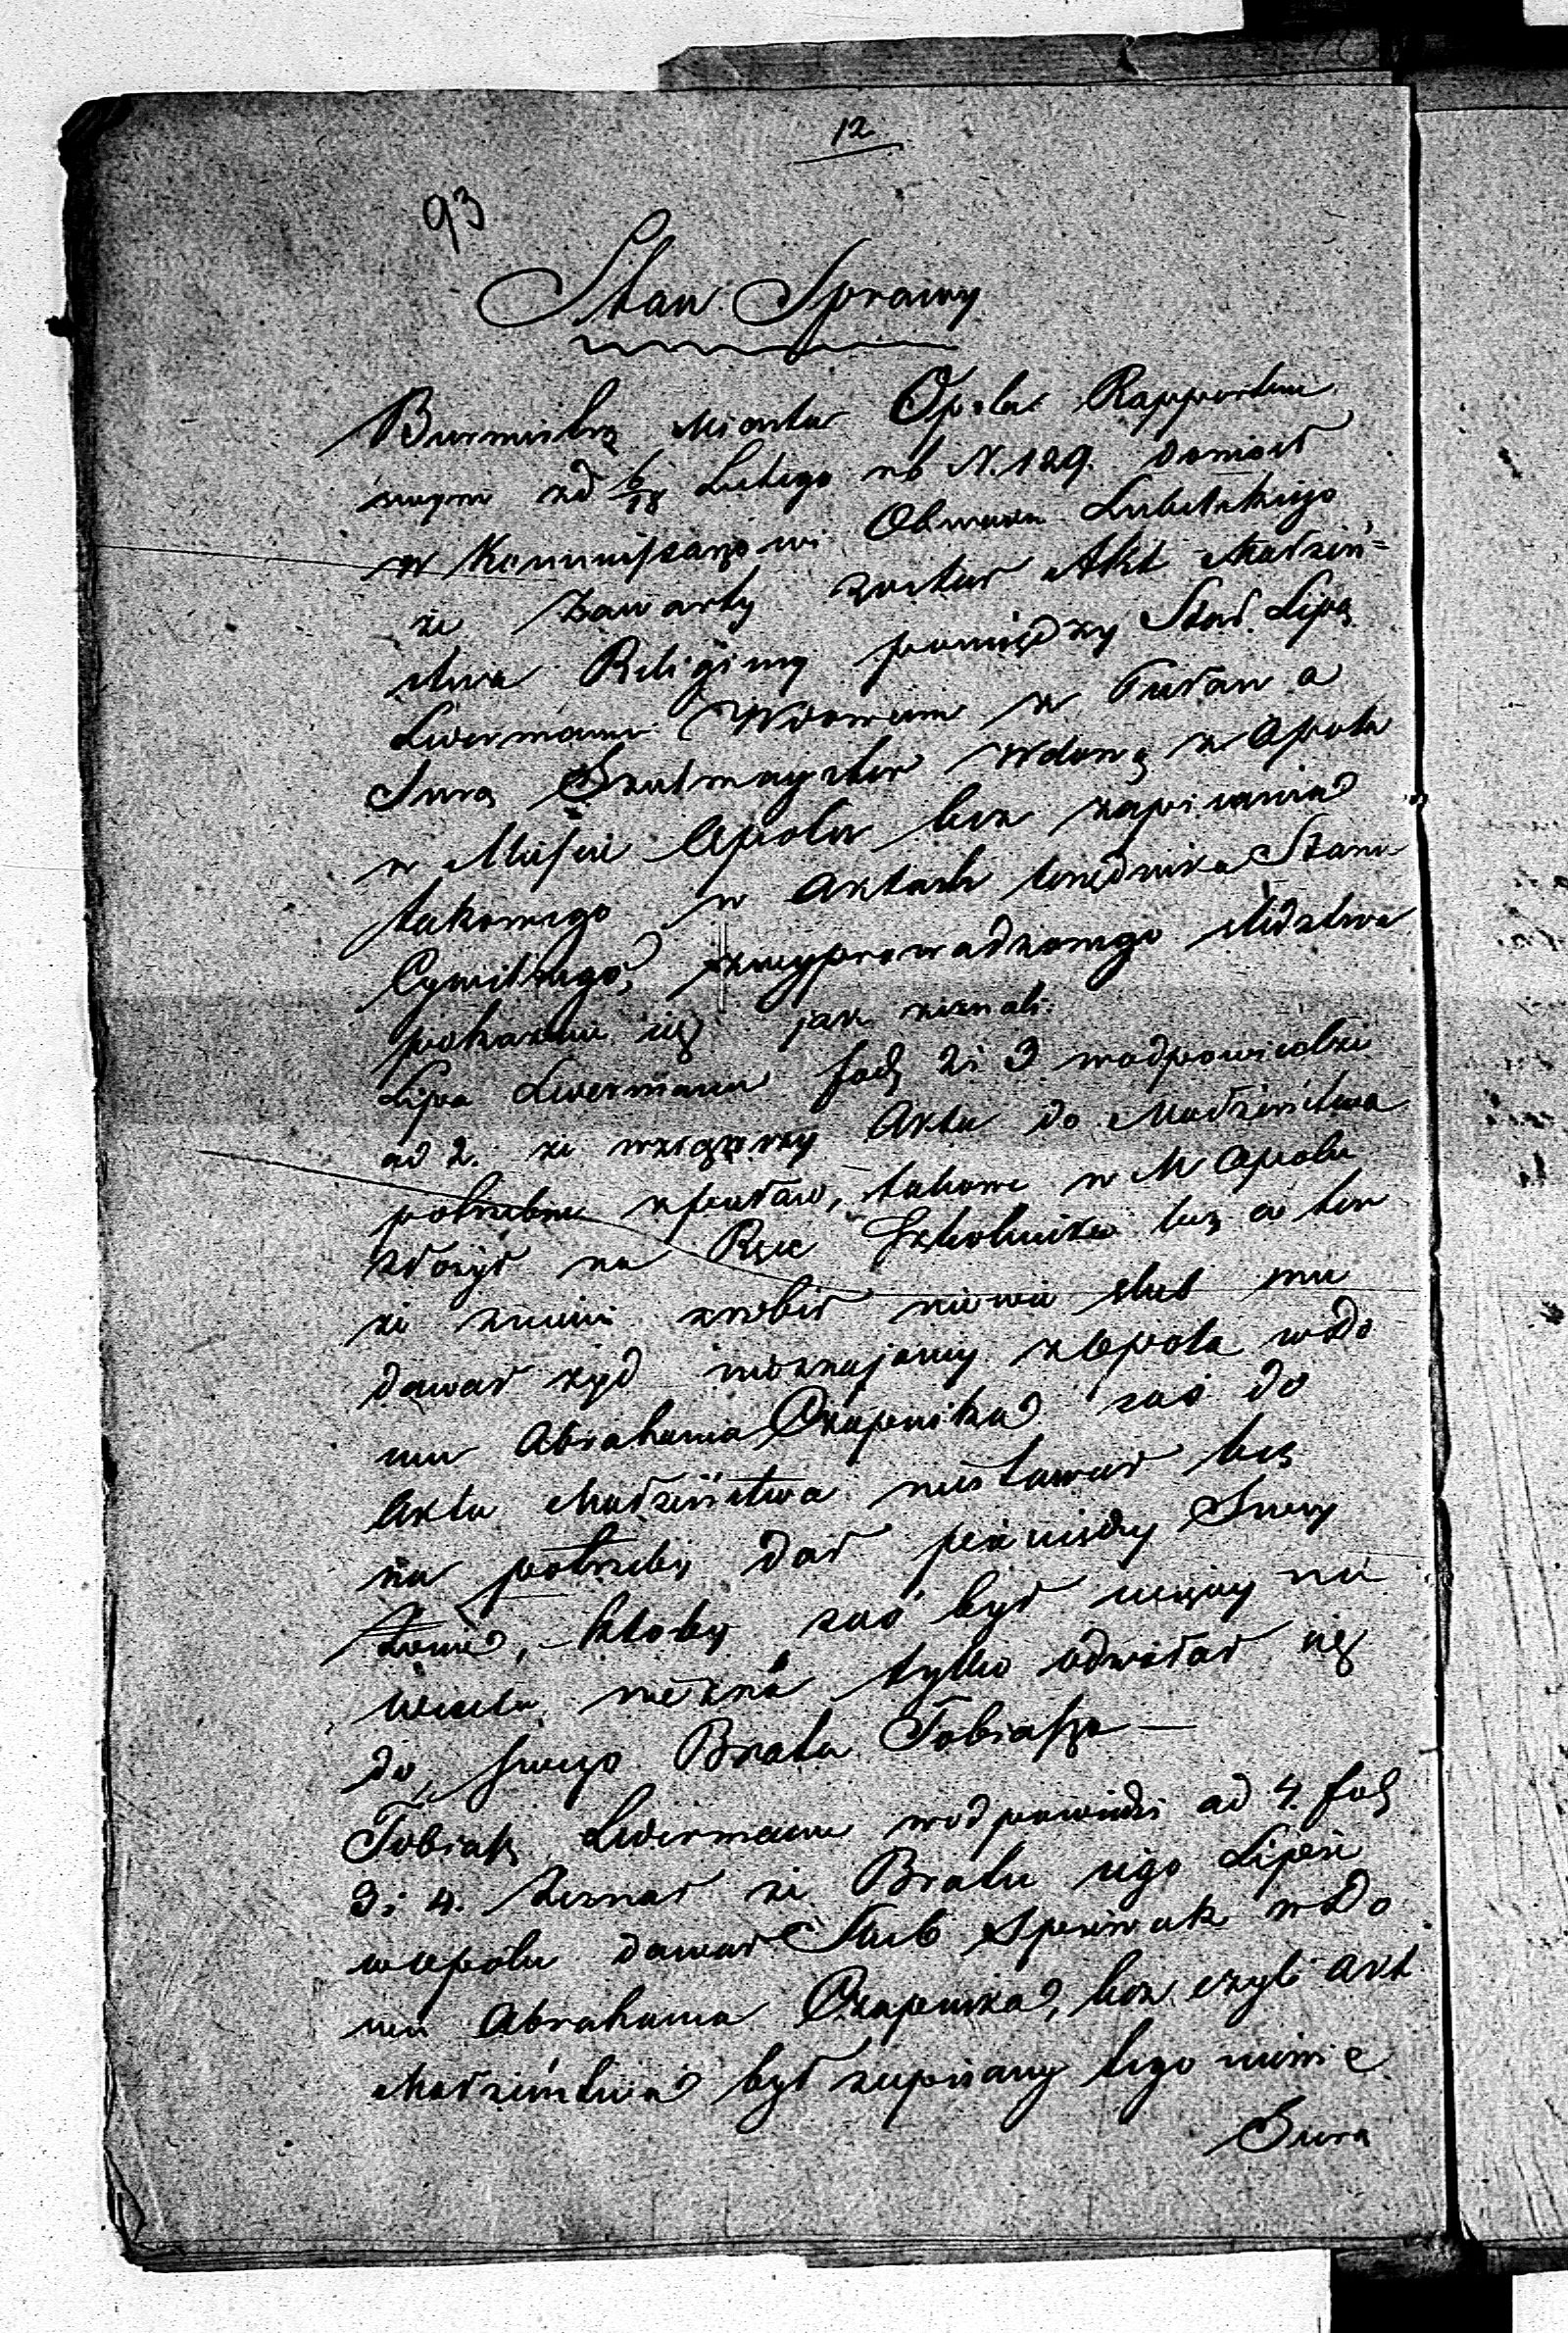 12
93
Stan Sprawy
Burmistrz Miasta Opola Rapportem
swym od 6/18 Lutego rb N. 129. doniosł
w Kommissarzowi Obwodu Lubelskiego
że zawarty został Akt Małżeń=
stwa Religijny pomiędzy Star. Lipą
Liwermanem Wdowcem z Puław a
Surą Szulmayster Wdową z Opola
w Mieście Opolu bez zapisania
takowego w Aktach Urzędnika Stanu
Cywilnego, z wyprowadzonego śledztwa
pokazuie się jak zeznali:
Lipa Liwerman fol. 2 i 3 w odpowiedzi
ad 2. że wziąwszy Akta do Małżeństwa
potrzebne z Puław, takowe w M Opolu
złożył na Ręce Szkolnika lecz co ten
z niemi zrobił niewie ślub mu
dawał żyd nieznajomy z Opola w do
mu Abrahama Czapnika zaś do
Aktu Małżeństwa niestawał lecz
na potrzeby dał pieniędzy Sury
żonie, ktoby zaś był więcej na
Weselu niezna tylko odwołał się
do swego Brata Tobiasza —
Tobiasz Liwerman w odpowiedzi ad 4. fol.
3 i 4. Zeznał że Bratu iego Lipie
w Opolu dawał Ślub Spiewak w do
mu Abrahama Czapnika, lecz czyli akt
Małżeństwa był zapisany tego niewie
Sura